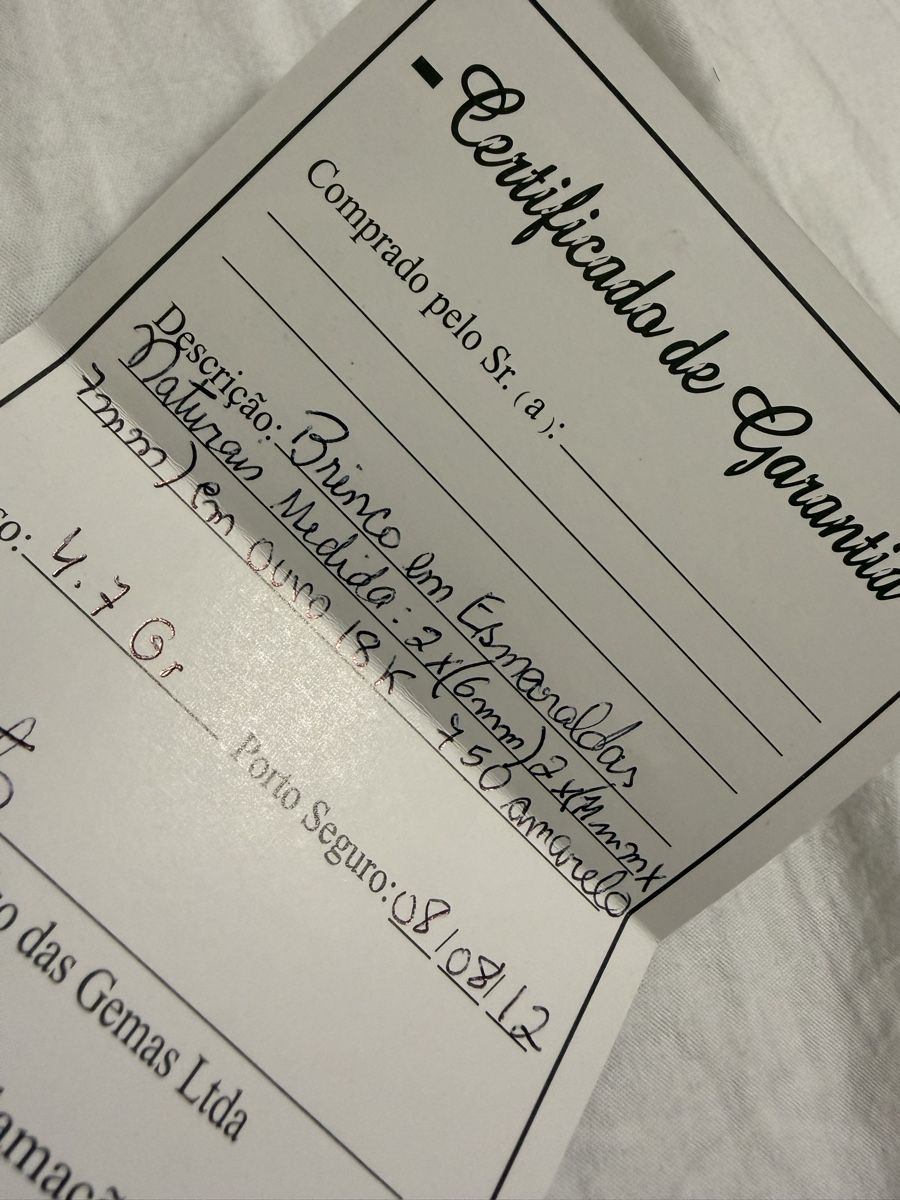 Certificado de Garantia
Comprado pelo Sr. (a):
Descrição: Brinco em Esmeraldas
Naturais Medida: 2x(6mm) 2x(11mmx
7mm) em Ouro 18K 750 amarelo
so: 4.7 Gr Porto Seguro: 08/08/12
o das Gemas Ltda